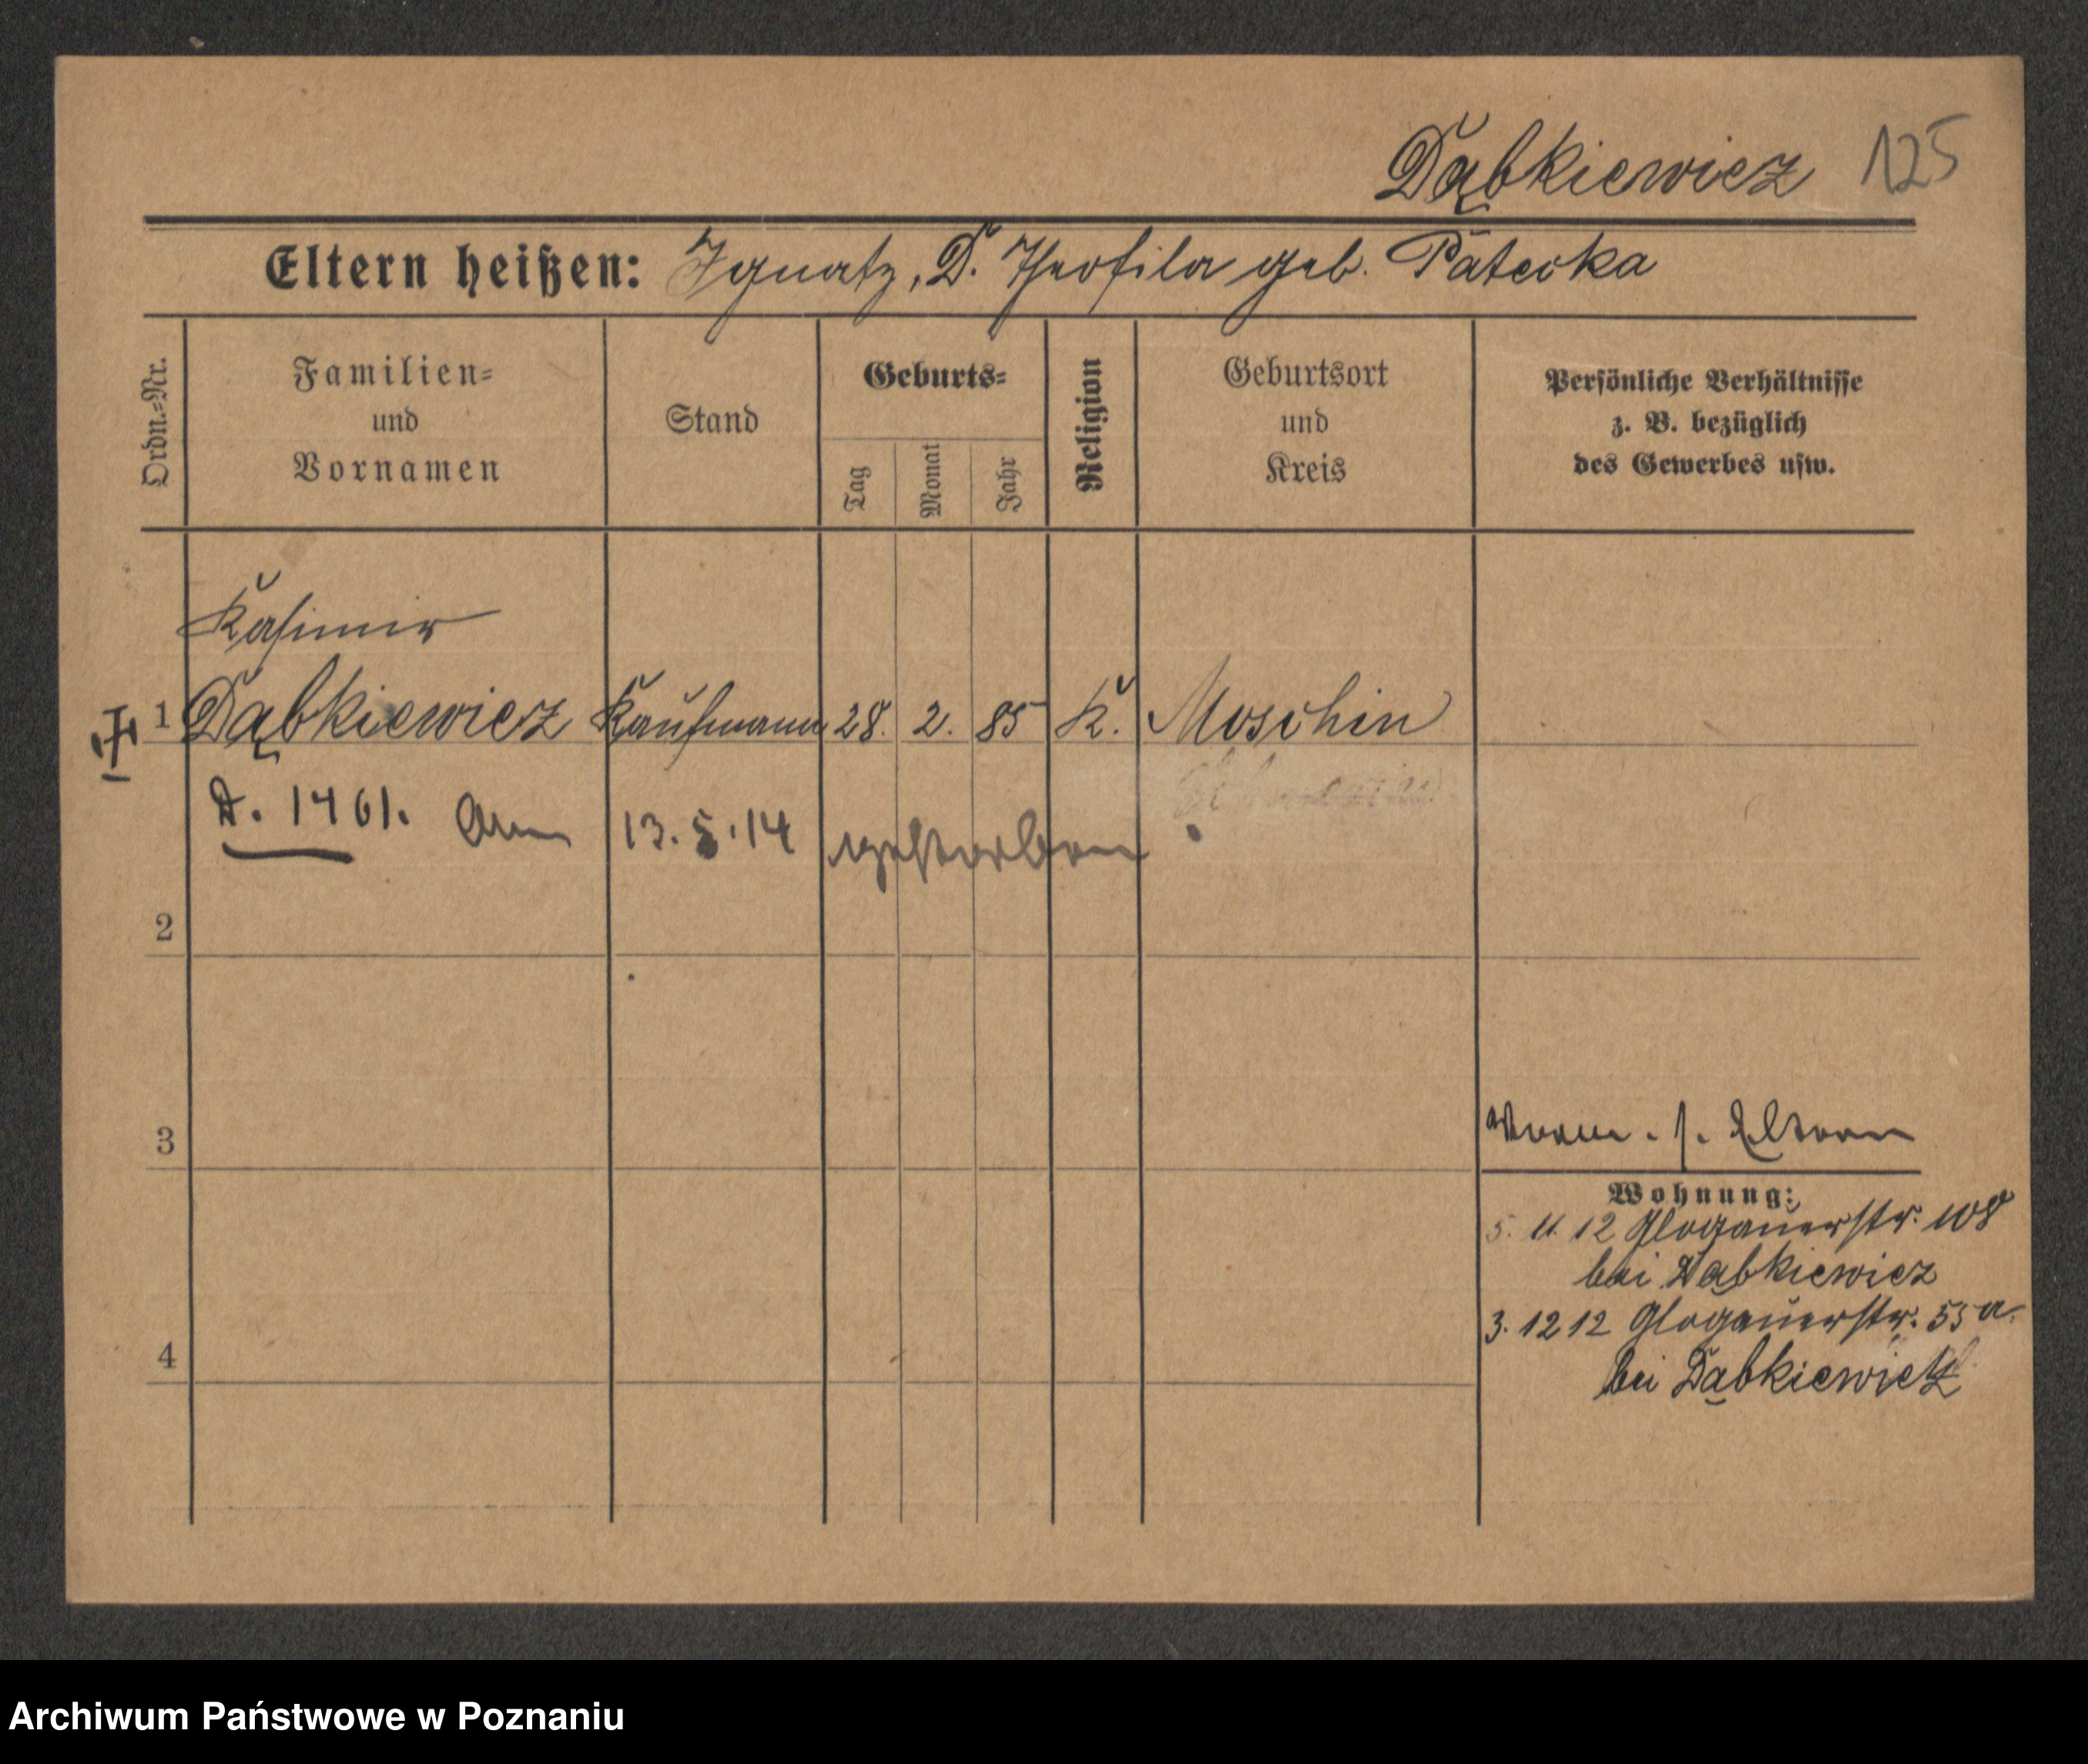 Dąbkiewicz 125
Eltern heißen: Ignatz, D. Theofila geb. Patecka
Ordn.-Nr.
Familien-
und
Vornamen
Stand
Geburts-
Tag
Monat
Jahr
Religion
Geburtsort
und
Kreis
Persönliche Verhältnisse
z. B. bezüglich
des Gewerbes usw.
Kasimir
1 Dąbkiewicz Kaufmann 28. 2. 85 K. Moschin
A. 1461. am 13.5.14 gestorben
2
3
s. Eltern
Wohnung:
5. 11. 12 Glogauerstr. 108
bei Dąbkiewicz
3. 12 12 Glogauerstr. 55 a.
bei Dąbkiewicz
4
Archiwum Państwowe w Poznaniu